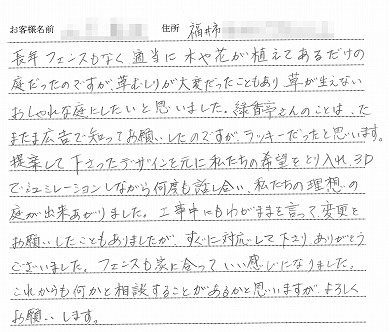 お客様名前 住所 福井市
長年フェンスもなく適当に木や花が植えてあるだけの
庭だったのですが草むしりが大変だったこともあり草が生えない
おしゃれな庭にしたいと思いました。緑香亭さんのことは、た
またま広告で知ってお願いしたのですがラッキーだったと思います。
提案して下さったデザインを元に私たちの希望をとり入れ、3D
でシュミレーションしながら何度も話し合い、私たちの理想の
庭が出来あがりました。工事中にもわがままを言って変更を
お願いしたこともありましたが、すぐに対応して下さりありがとう
ございました。フェンスも家に合っていい感じになりました。
これからも何かと相談することがあるかと思いますが、よろしく
お願いします。